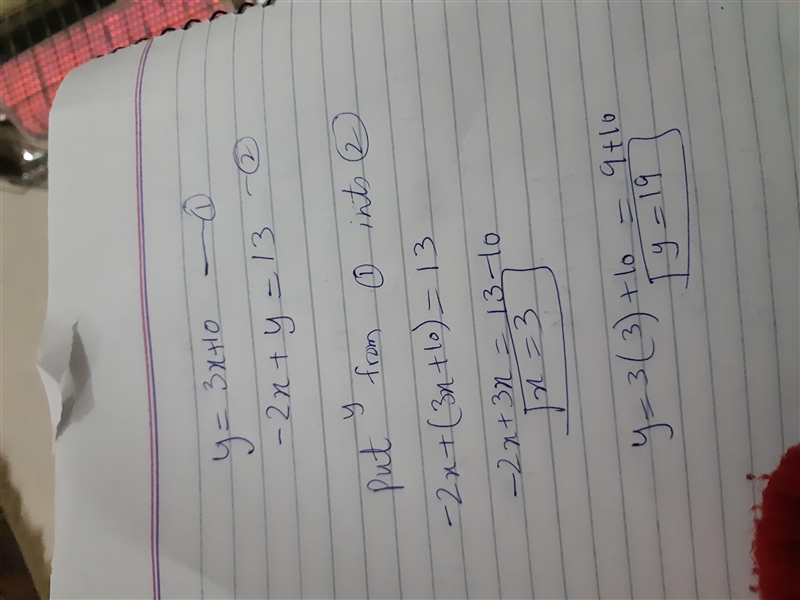 y = 3x+10 — ①
-2x + y = 13 - ②
Put y from ① into ②
-2x+(3x+10) = 13
-2x+3x = 13-10
x = 3
y = 3(3)+10 = 9+10
y = 19